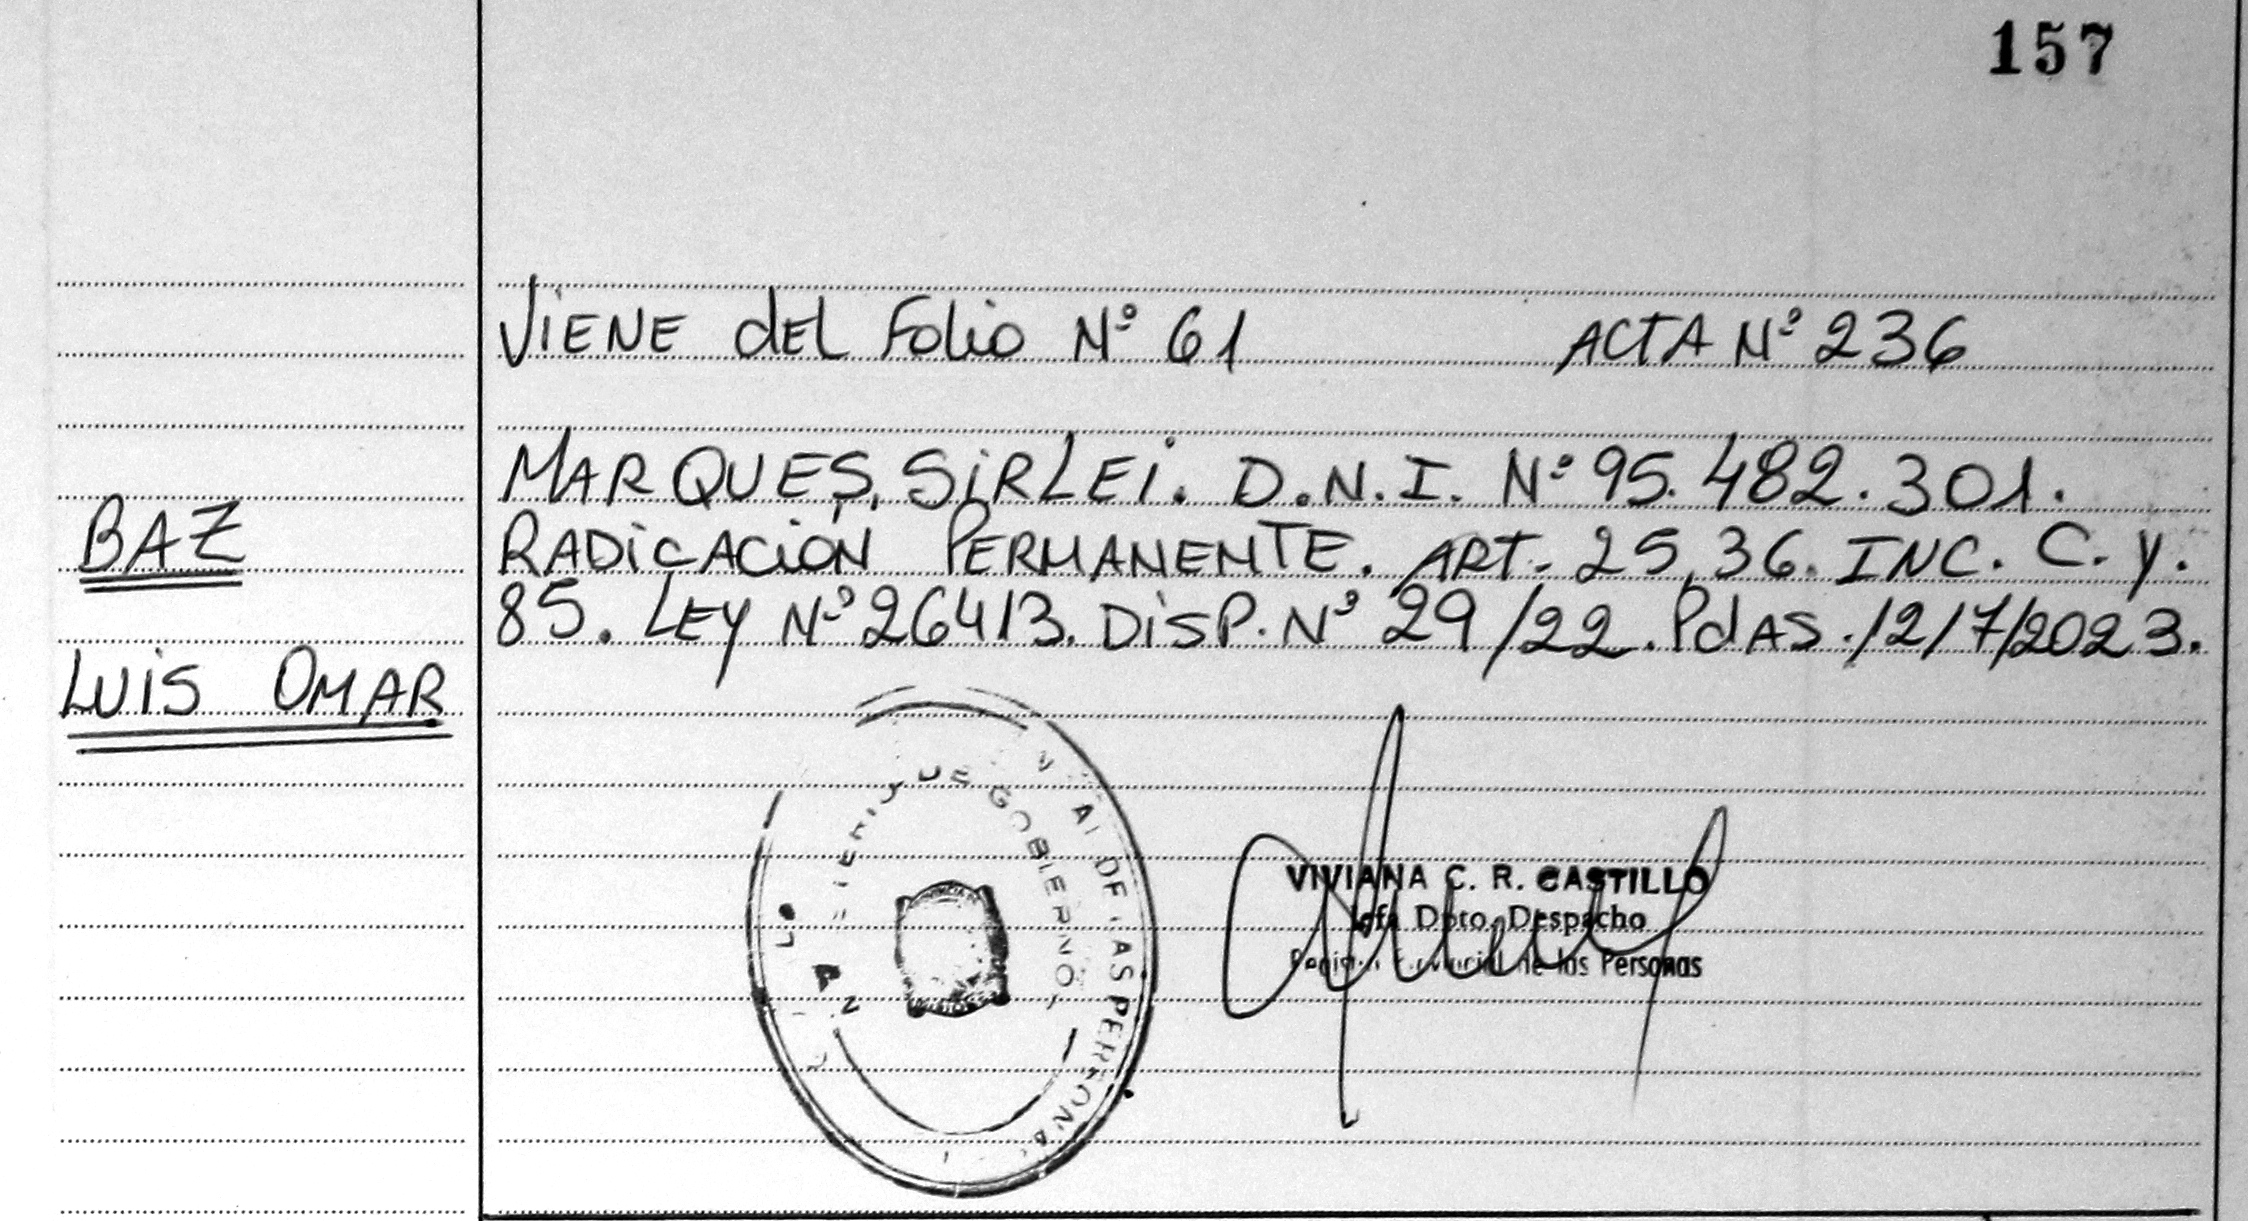 157
VIENE dEL Folio Nº 61 ACTA Nº 236
MARQUES, SIRLEI. D.N.I. Nº 95.482.301.
BAZ
RADICACIÓN PERMANENTE. ART. 25, 36. INC. C. y.
85. LEY Nº 26413. DISP. Nº 29/22. PdAS. 12/7/2023.
LUIS OMAR
DE GOBIERNO
DE LAS PERSONAS
VIVIANA C. R. CASTILLO
Jefa Dpto. Despacho
Registro Provincial de las Personas